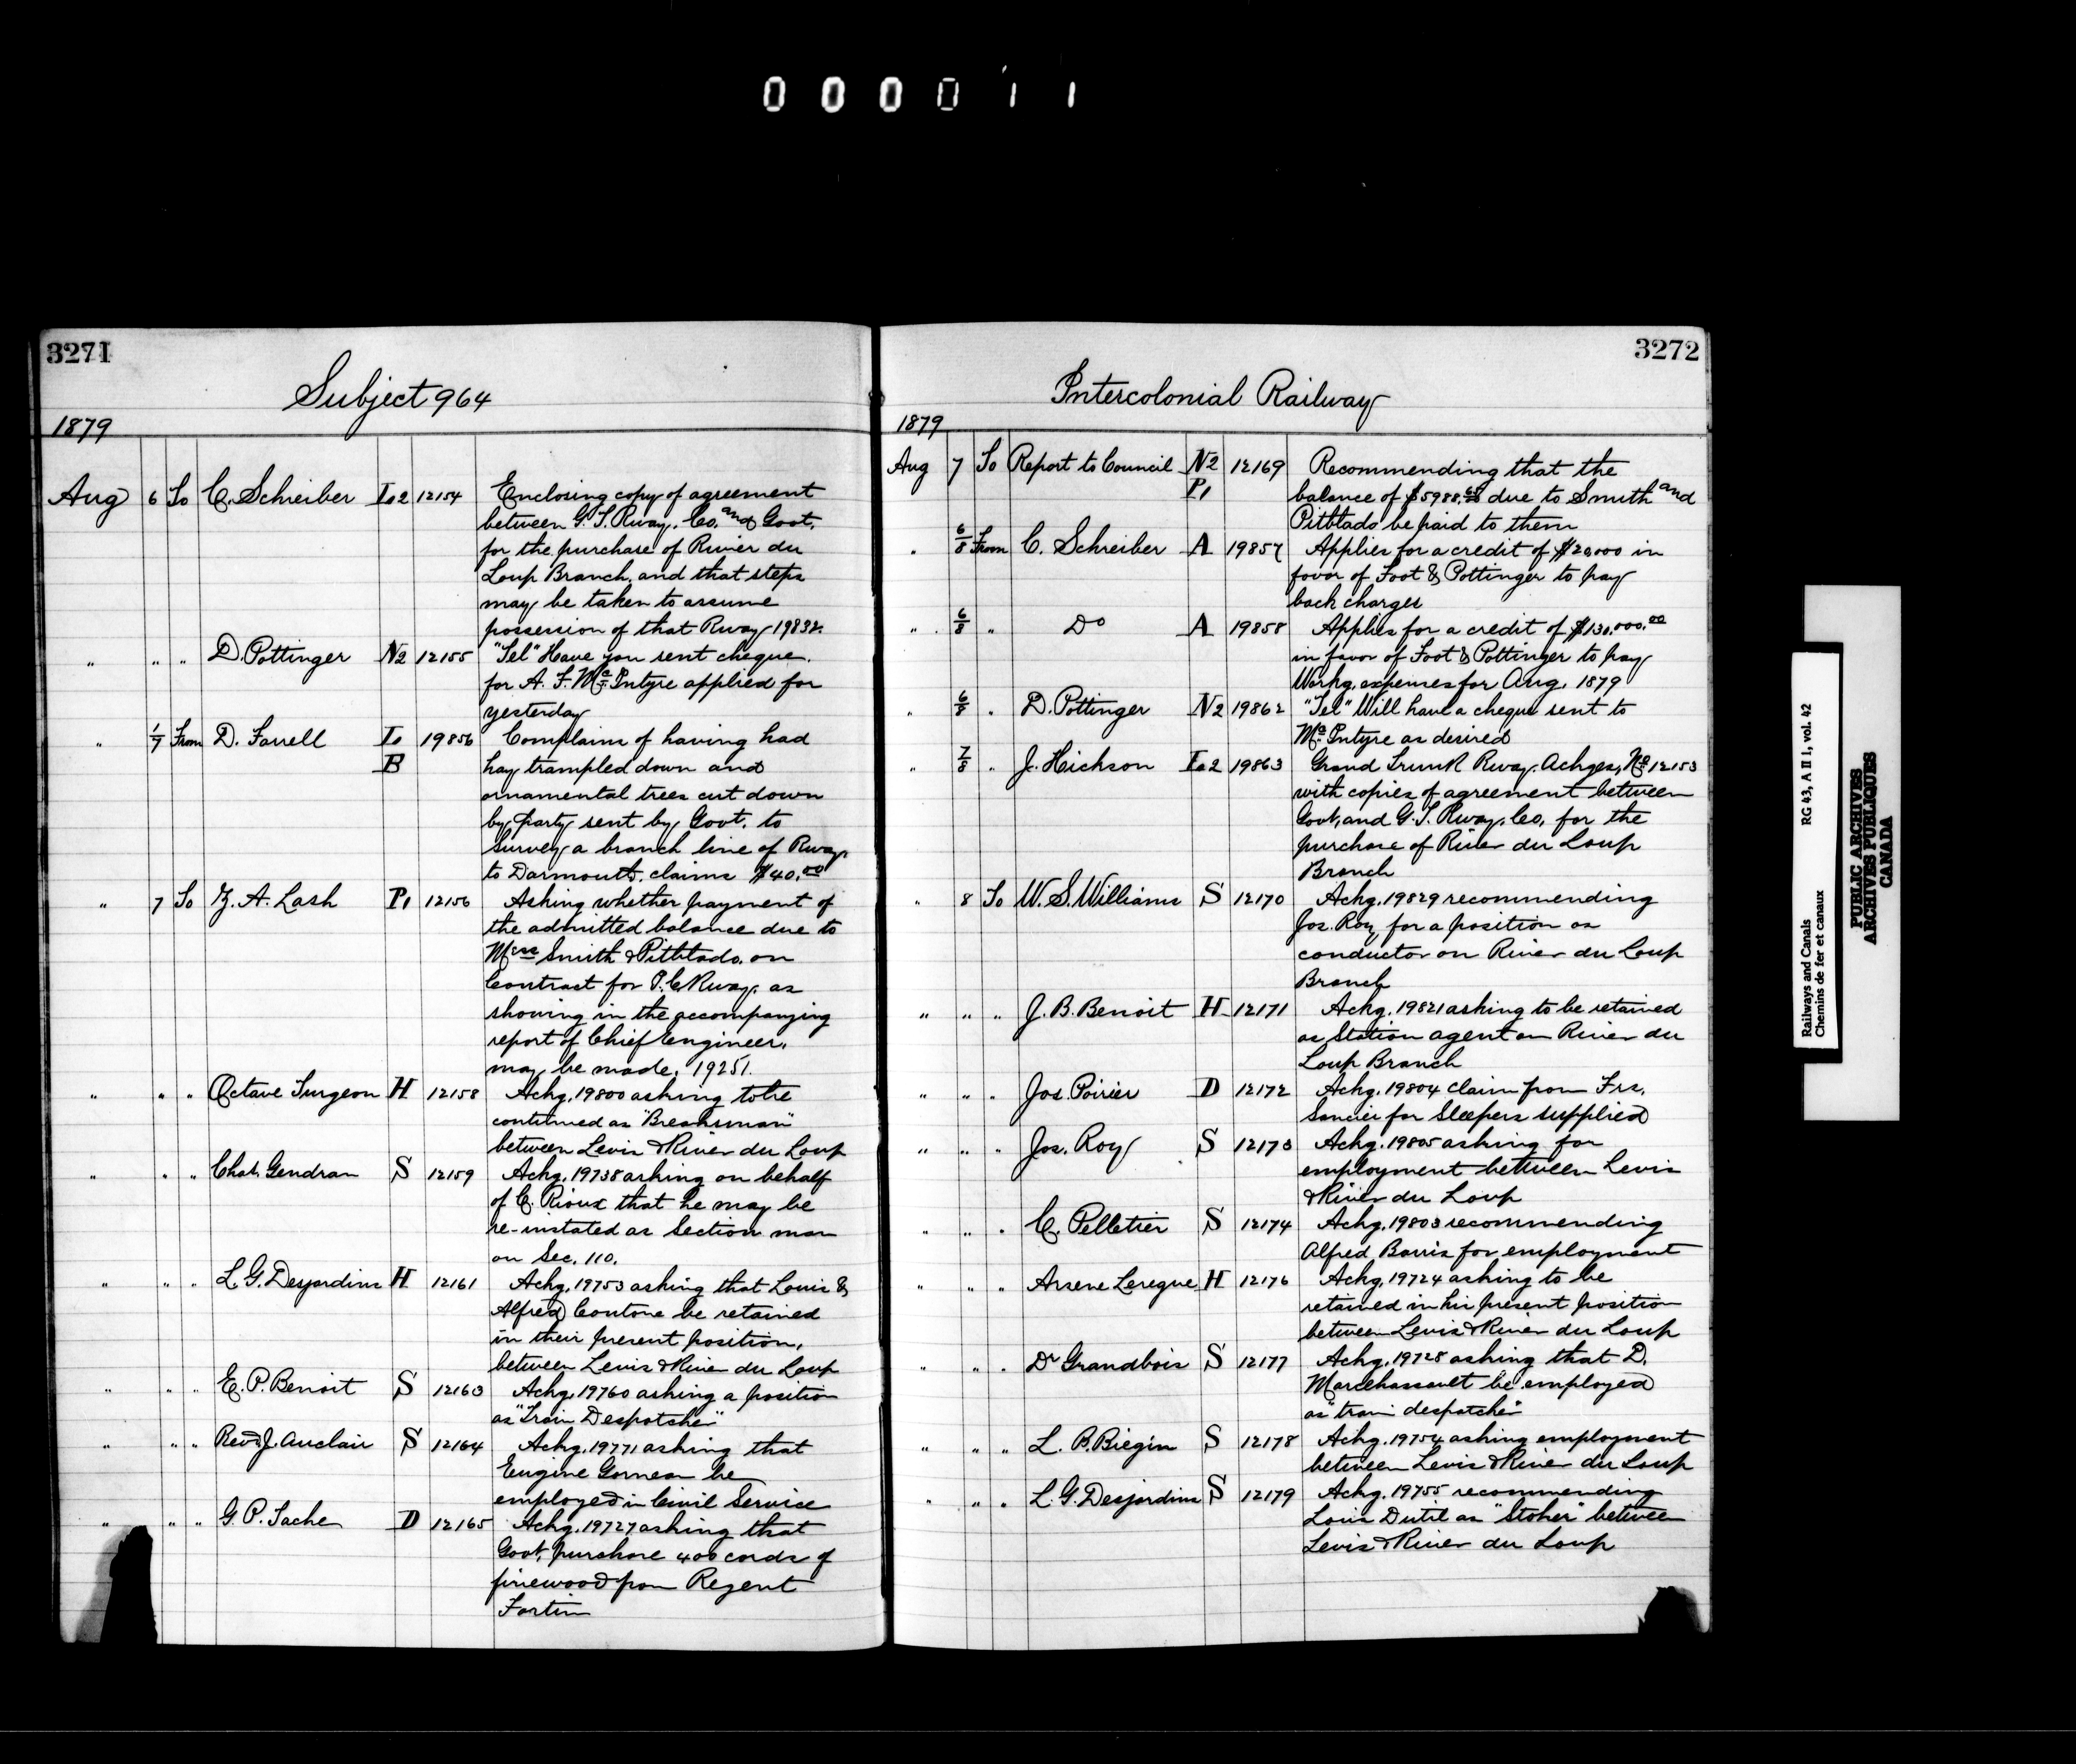 000011
3271
Subject 964
1879
Aug 6 To C. Schreiber L2 12154 Enclosing copy of agreement
between G.T. Rway. Co. and Govt.
for the purchase of River du
Loup Branch, and that steps
may be taken to assume
possession of that Rway 19832.
" " " D. Pottinger N2 12155 "Tel" Have you sent cheque
for A. F. McIntyre applied for
yesterday
" 1/7 From D. Farrell L 19856 Complains of having had
B hay trampled down and
ornamental trees cut down
by party sent by Govt. to
survey a branch line of Rway.
to Darmouth. claims $40.00
" 7 To Z. A. Lash P1 12156 Asking whether payment of
the admitted balance due to
Messrs Smith & Pitblado. on
Contract for P.C Rway. as
showing in the accompanying
report of Chief Engineer.
may be made. 19251.
" " " Octave Turgeon H 12158 Ackg. 19800 asking to be
continued as "Breaksman"
between Levis & River du Loup
" " " Chas. Gendran S 12159 Ackg. 19738 asking on behalf
of C. Rioux that he may be
re-instated as Section man
on Sec. 110.
" " " L. G. Desjardins H 12161 Ackg. 19753 asking that Louis &
Alfred Contone be retained
in their present position.
between Levis & River du Loup
" " " E. P. Benoit S 12163 Ackg. 19760 asking a position
as "Train Despatcher"
" " " Revd J. Auclair S 12164 Ackg. 19771 asking that
Eugine Gorneau be
employed in Civil Service
" " " G. P. Tache D 12165 Ackg. 19727 asking that
Govt. purchase 400 cords of
firewood from Regent
Fortin
3272
Intercolonial Railway
1879
Aug 7 To Report to Council N2 12169 Recommending that the
P1 balance of $5988.68 due to Smith and
Pitblado be paid to them
" 6/8 From C. Schreiber A 19857 Applies for a credit of $20,000 in
favor of Foot & Pottinger to pay
back charges
" 6/8 " Do A 19858 Applies for a credit of $130,000.00
in favor of Foot & Pottinger to pay
Workg. expenses for Aug. 1879
" 6/8 " D. Pottinger N2 19862 "Tel" Will have a cheque sent to
McIntyre as desired
" 7/8 " J. Hickson L2 19863 Grand Trunk Rway. Ackges, No 12153
with copies of agreement between
Govt. and G.T. Rway. Co. for the
purchase of River du Loup
Branch
" 8 To W. S. Williams S 12170 Ackg. 19829 recommending
Jos. Roy for a position as
conductor on River du Loup
Branch
" " " J. B. Benoit H 12171 Ackg. 19821 asking to be retained
as Station agent on River du
Loup Branch
" " " Jos. Poirier D 12172 Ackg. 19804 claim from Frs.
Soncier for Sleepers supplied
" " " Jos. Roy S 12173 Ackg. 19805 asking for
employment between Levis
& River du Loup
" " " C. Pelletier S 12174 Ackg. 19803 recommending
Alfred Barris for employment
" " " Arsene Leregue H 12176 Ackg. 19724 asking to be
retained in his present position
between Levis & River du Loup
" " " Dr Grandbois S 12177 Ackg. 19728 asking that D.
Marchessault be employed
as "train despatcher"
" " " L. P. Biegin S 12178 Ackg. 19754 asking employment
between Levis & River du Loup
" " " L. G. Desjardins S 12179 Ackg. 19755 recommending
Louis Dutil as "Stoker" between
Levis & River du Loup
Railways and Canals RG 43, A II 1, vol. 42
Chemins de fer et canaux
PUBLIC ARCHIVES
ARCHIVES PUBLIQUES
CANADA